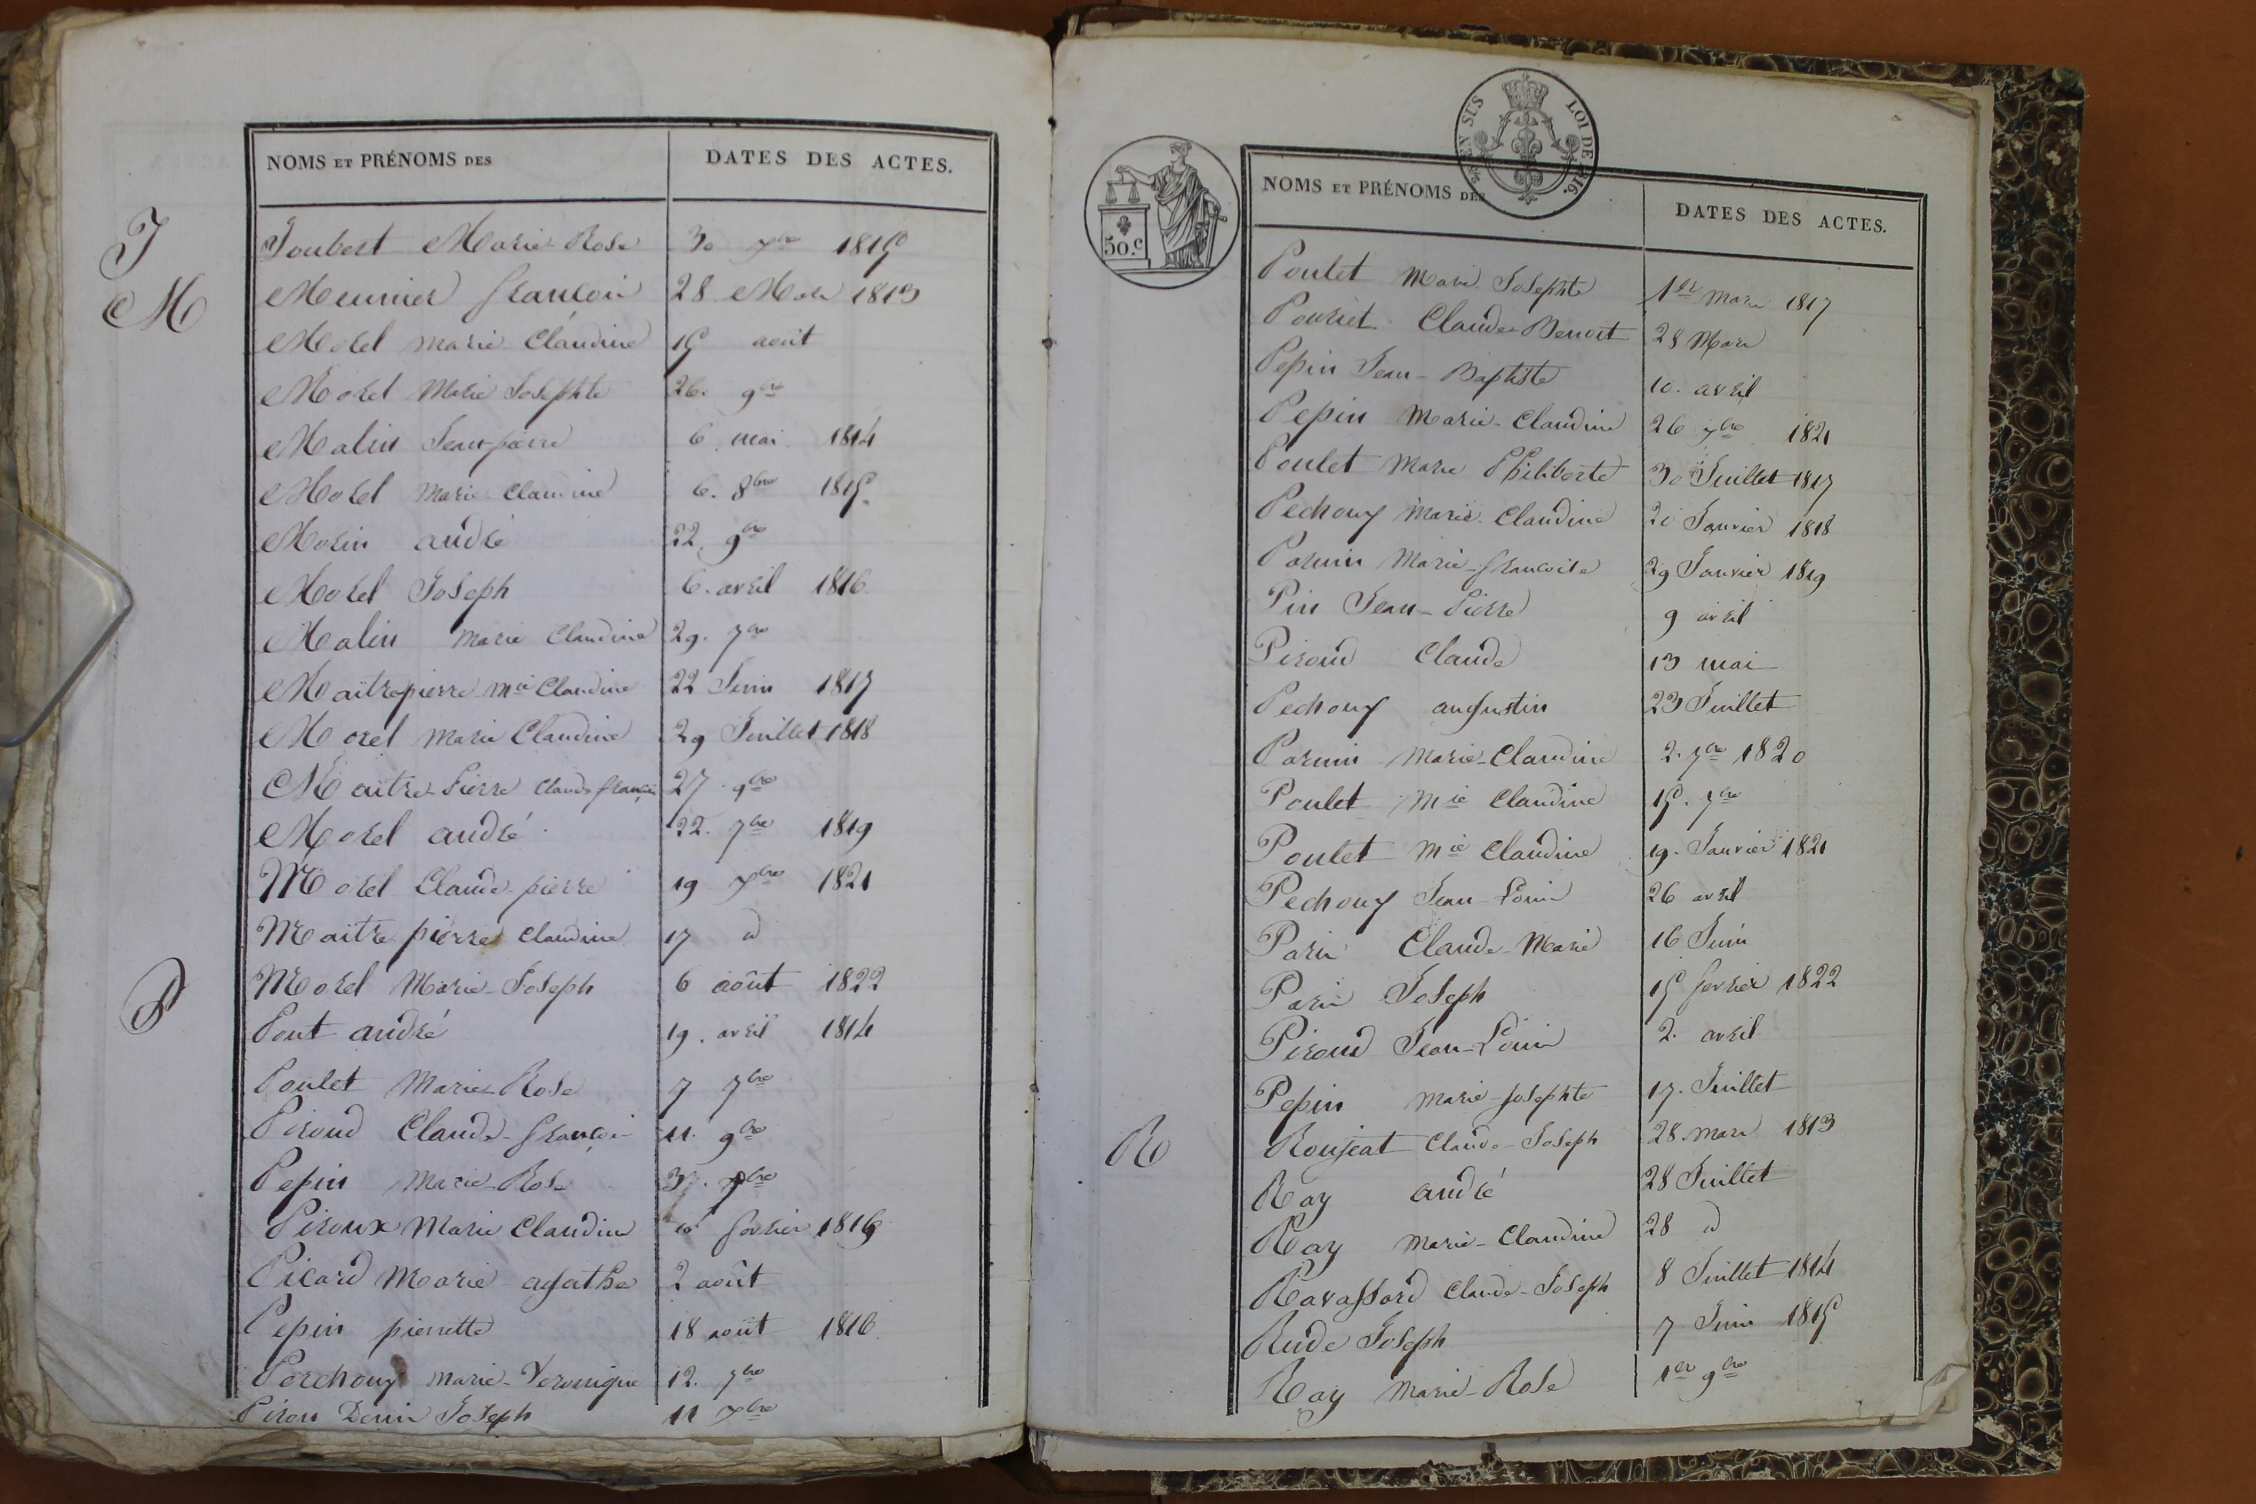 NOMS ET PRÉNOMS DES DATES DES ACTES.
J Joubert Marie-Rose 30 7bre 1815
M Meunier françois 28 Mars 1813
Morel marie-Claudine 15 août
Morel Marie Josephte 26. 9bre
Malin Jean-pierre 6. mai 1814
Morel Marie-Claudine 6. 8bre 1815
Morin andré 22. 9bre
Morel Joseph 6. avril 1816
Malin Marie Claudine 29. 7bre
Maitrepierre mie Claudine 22 Juin 1817
Morel Marie Claudine 29 Juillet 1818
Maitre-Pierre Claude françois 27. 9bre
Morel andré 22. 7bre 1819
Morel Claude-pierre 19 Xbre 1821
Maitre pierre Claudine 17 d
Morel Marie-Joseph 6 août 1822
P Pont andré 19. avril 1814
Poulet Marie-Rose 7 7bre
Piroud Claude-françois 11. 9bre
Pepin Marie-Rose Xbre
Piroux Marie Claudine février
Picard Marie-agathe 2 août
Pepin pierrette 18 août 1816
Perchoux marie-Veronique 12. 7bre
Pirou Denis Joseph 11 Xbre
50.c
LOI DE 1816.
NOMS ET PRÉNOMS DES DATES DES ACTES.
Poulet Marie Josephte 1er mars 1817
Pouriet Claude-Benoit 28 Mars
Pepin Jean-Baptiste 10. avril
Pepin Marie-Claudine 26 Xbre 1821
Poulet Marie Philiberte 30 Juillet 1817
Pechoux Marie Claudine 20 Janvier 1818
Parmin Marie-francoise 29 Janvier 1819
Pin Jean-Pierre 9 avril
Piroud Claude 13 mai
Pechoux augustin 23 Juillet
Parmin Marie-Claudine 2. 7bre 1820
Poulet Mie Claudine 15. 7bre
Poulet Mie Claudine 19. Janvier 1821
Pechoux Jean-Louis 26 avril
Paris Claude-Marie 16 Juin
Paris Joseph 15 fevrier 1822
Piroud Jean-Louis 2. avril
Pepin Marie-Josephte 17. Juillet
R Roujeat Claude-Joseph 28. mars 1813
Ray andré 28 Juillet
Ray Marie-Claudine 28 d
Ravassard Claude-Joseph 8 Juillet 1814
Rude Joseph 7 Juin 1815
Ray Marie-Rose 1er 9bre